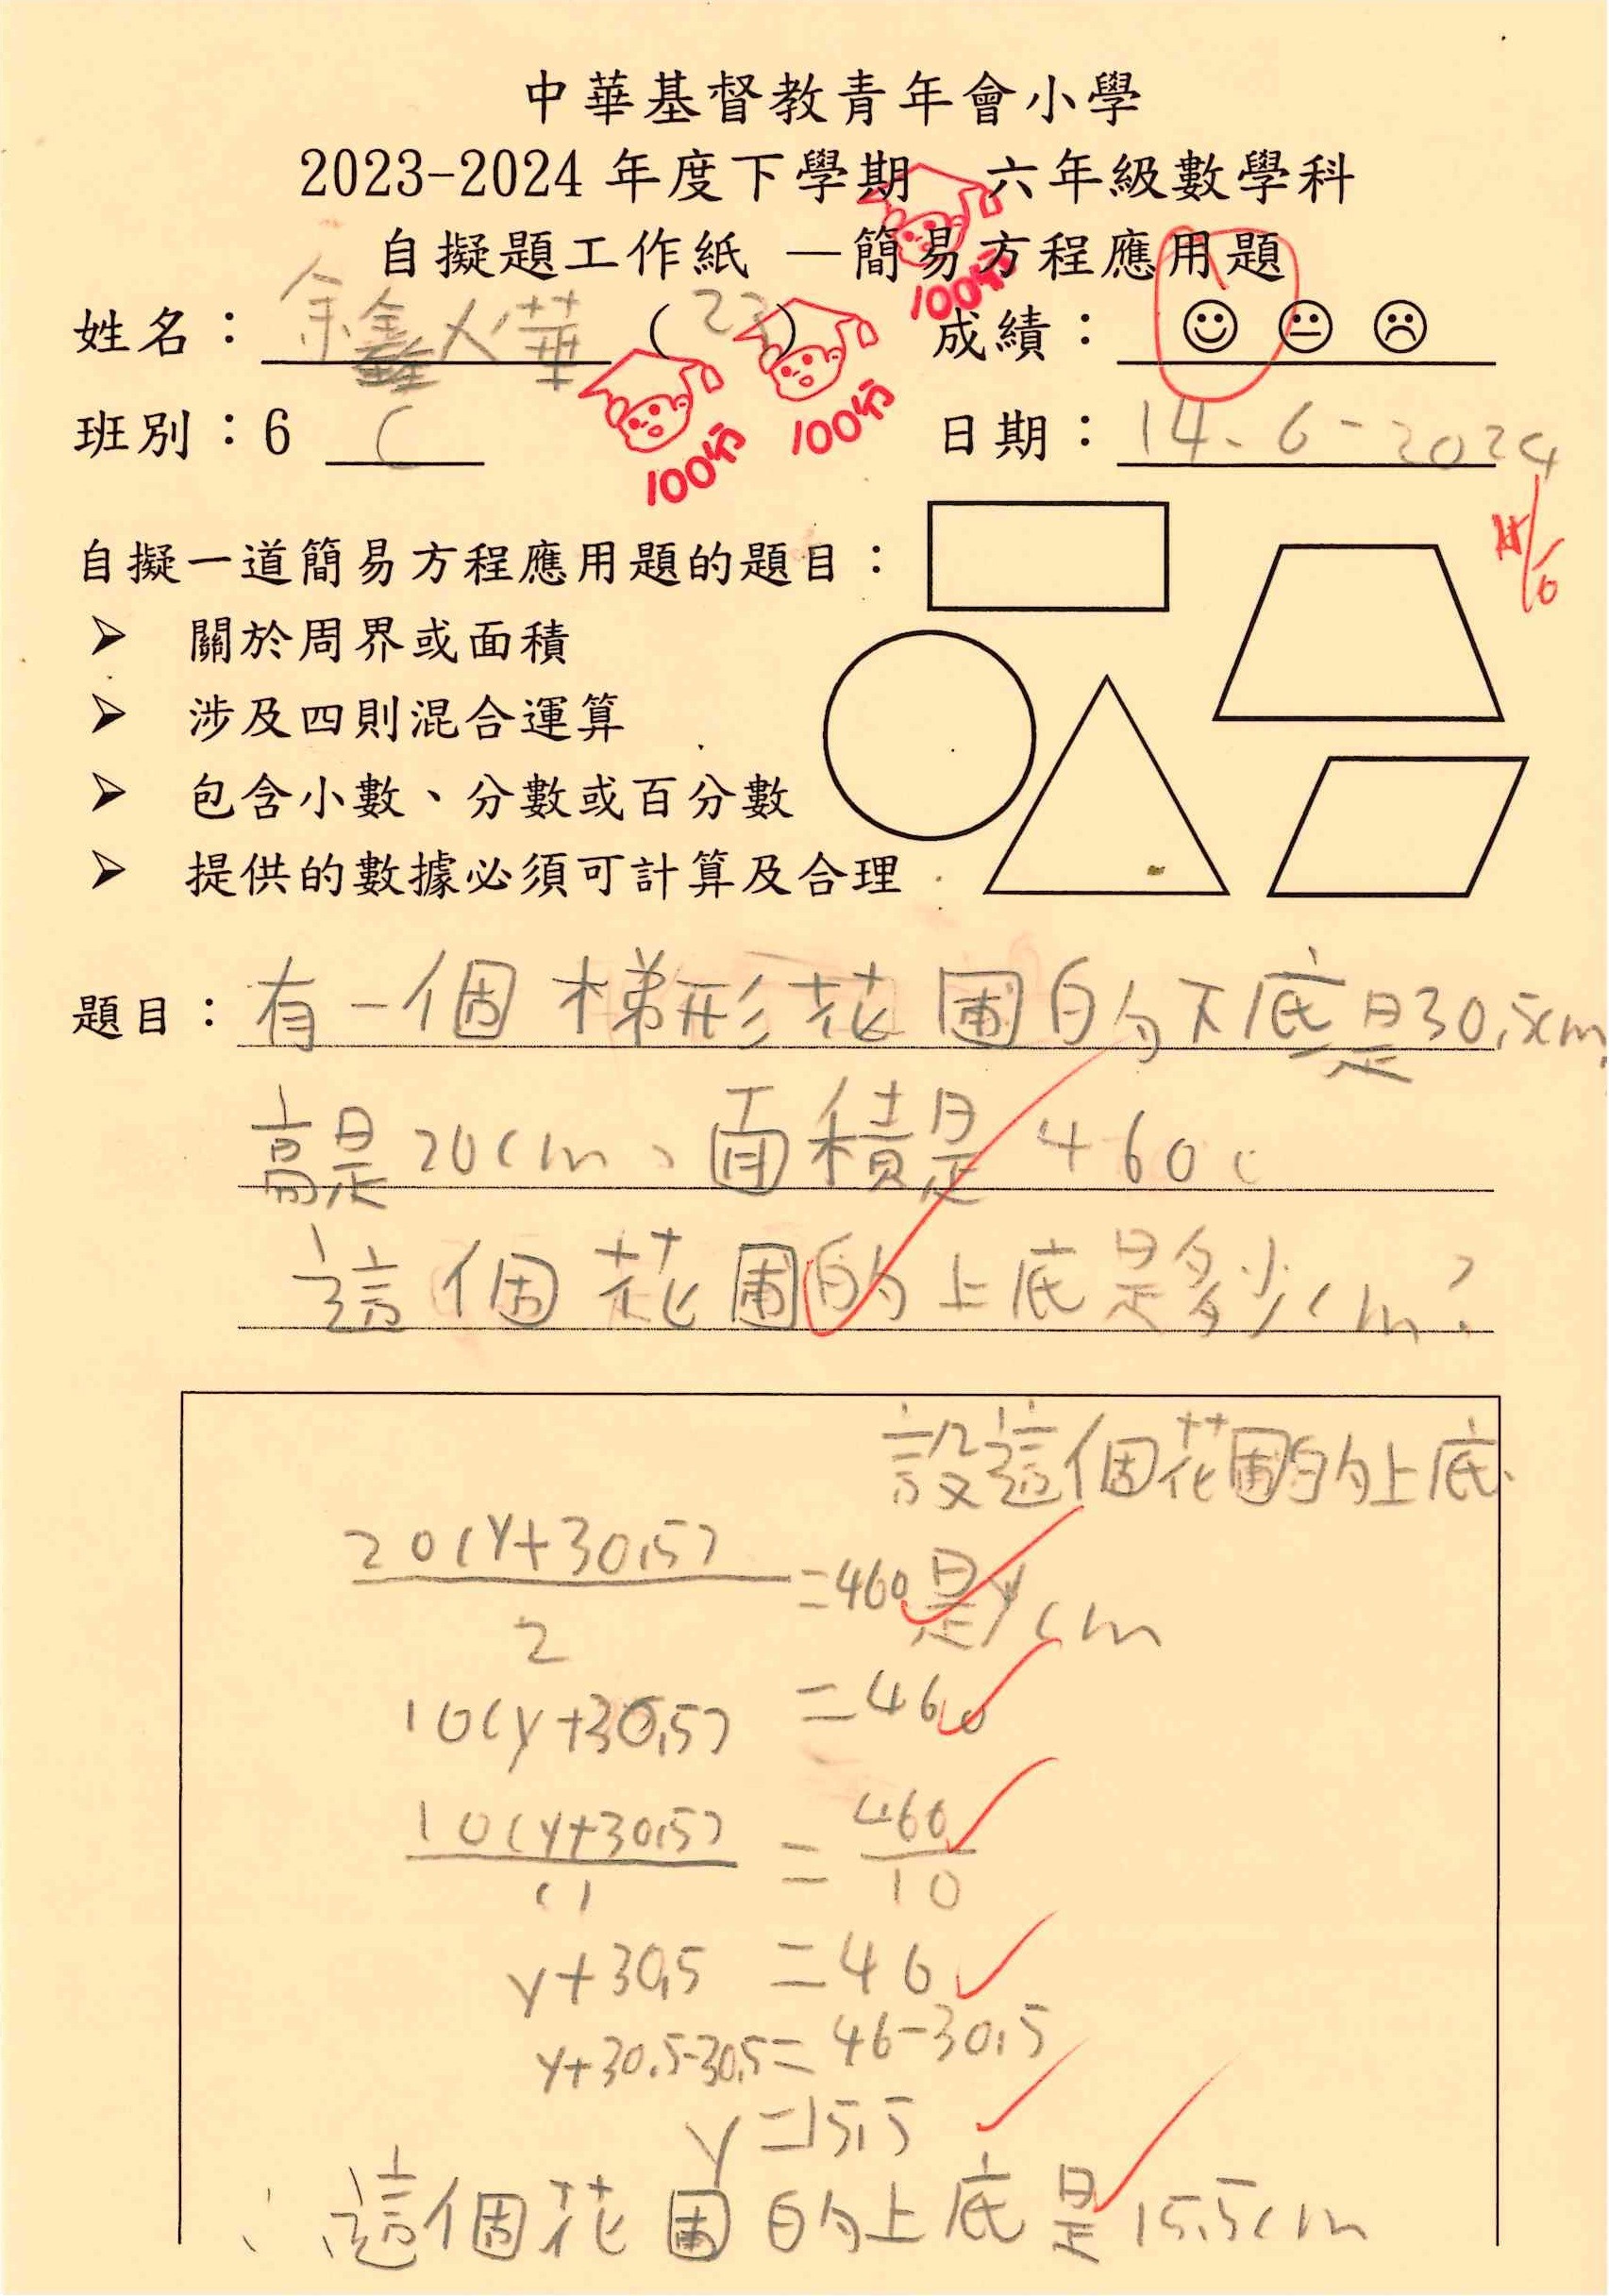 中華基督教青年會小學
2023-2024 年度下學期 六年級數學科
自擬題工作紙 —簡易方程應用題
姓名： 余鑫燁 ( 23 ) 成績：
班別：6 C 日期： 14-6-2024
自擬一道簡易方程應用題的題目：
關於周界或面積
涉及四則混合運算
包含小數、分數或百分數
提供的數據必須可計算及合理
100分
100分
100分
題目：有一個梯形花圃的下底是30.5cm,
高是20cm、面積是460c
這個花圃的上底是多少cm?
設這個花圃的上底
是ycm
20(y+30.5)
2
=460
10(y+30.5) =460
10(y+30.5) = 460
10
y+30.5 =46
y+30.5-30.5= 46-30.5
y=15.5
∴這個花圃的上底是15.5cm